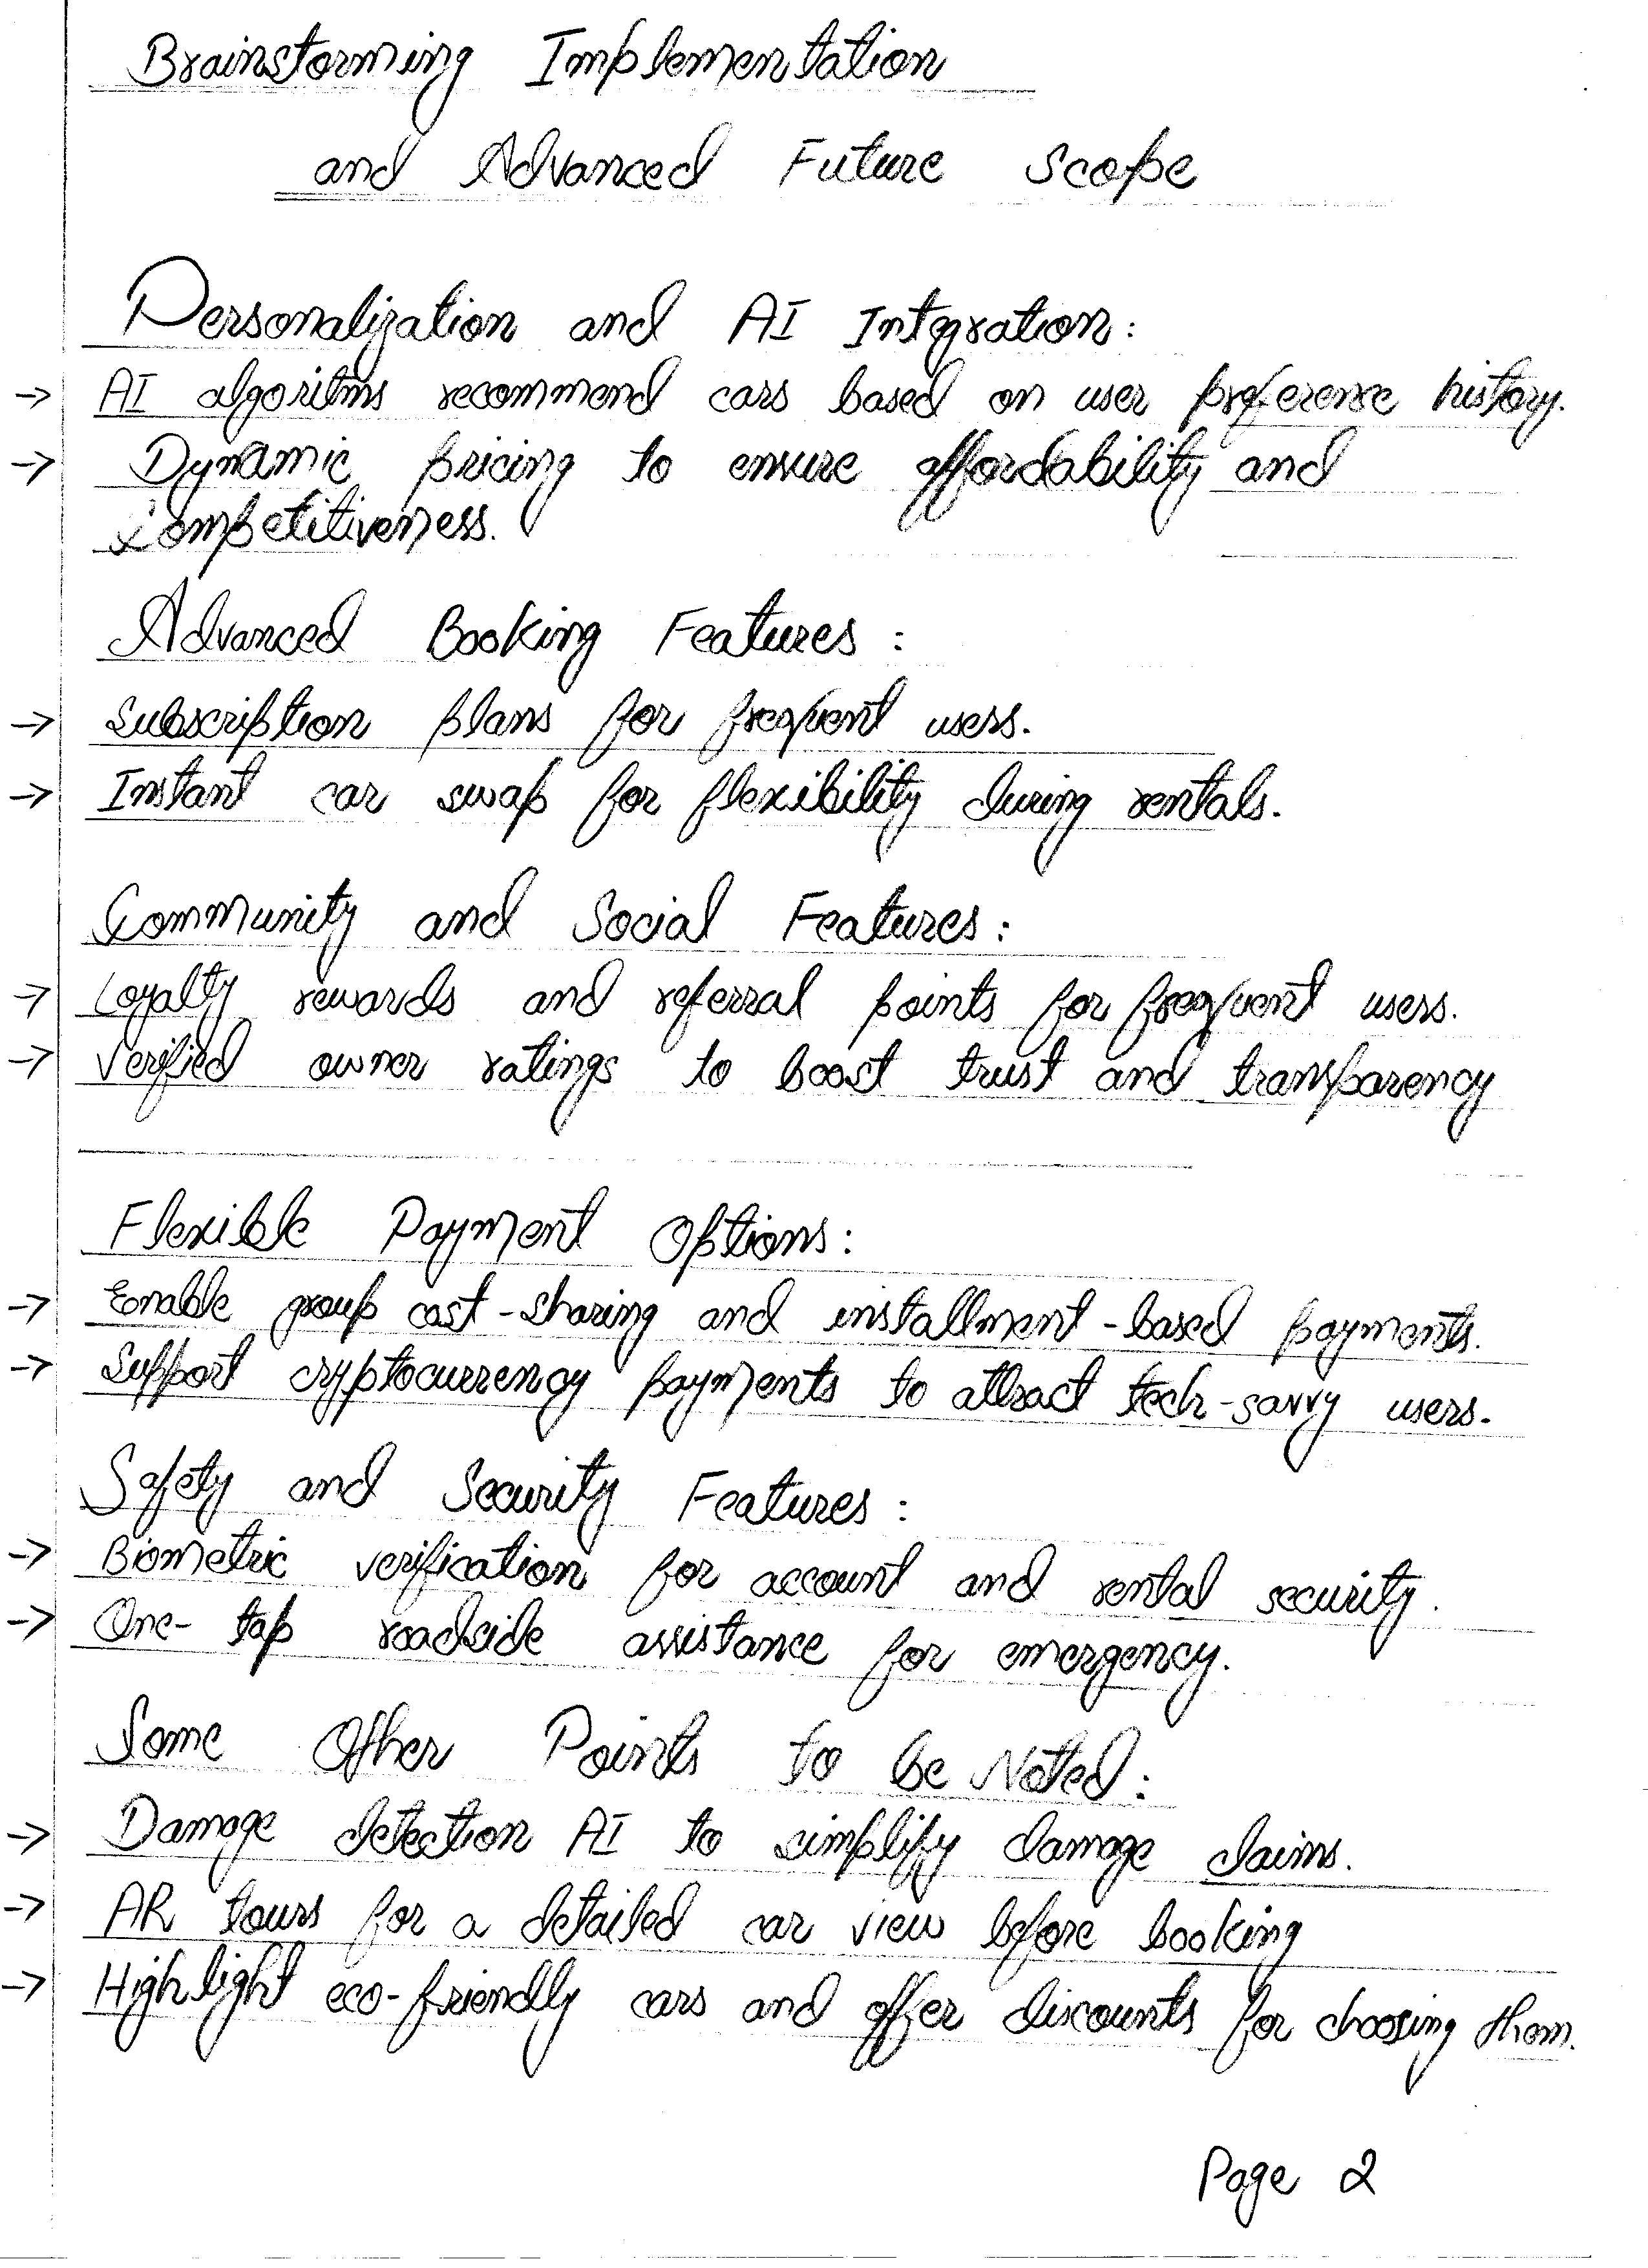 Brainstorming Implementation
and Advanced Future Scope
Personalization and AI Integration:
→ AI algoritms recommend cars based on user preference history.
→ Dynamic pricing to ensure affordability and
Competitiveness.
Advanced Booking Features:
→ Subscription plans for frequent users.
→ Instant car swap for flexibility during rentals.
Community and Social Features:
→ Loyalty rewards and referral points for frequent users.
→ Verified owner ratings to boost trust and transparency
Flexible Payment Options:
→ Enable group cost-sharing and installment-based payments.
→ Support cryptocurrency payments to attract tech-savvy users.
Safety and Security Features:
→ Biometric verification for account and rental security.
→ One-tap roadside assistance for emergency.
Some Other Points to be Noted:
→ Damage detection AI to simplify damage claims.
→ AR tours for a detailed car view before booking
→ Highlight eco-friendly cars and offer discounts for choosing them.
Page 2